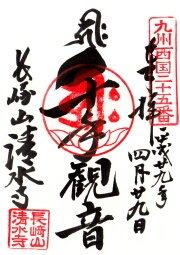 九州西国二十五番
奉拝
平成廿九年
四月廿九日
千手観音
長崎山清水寺
長崎山
清水寺